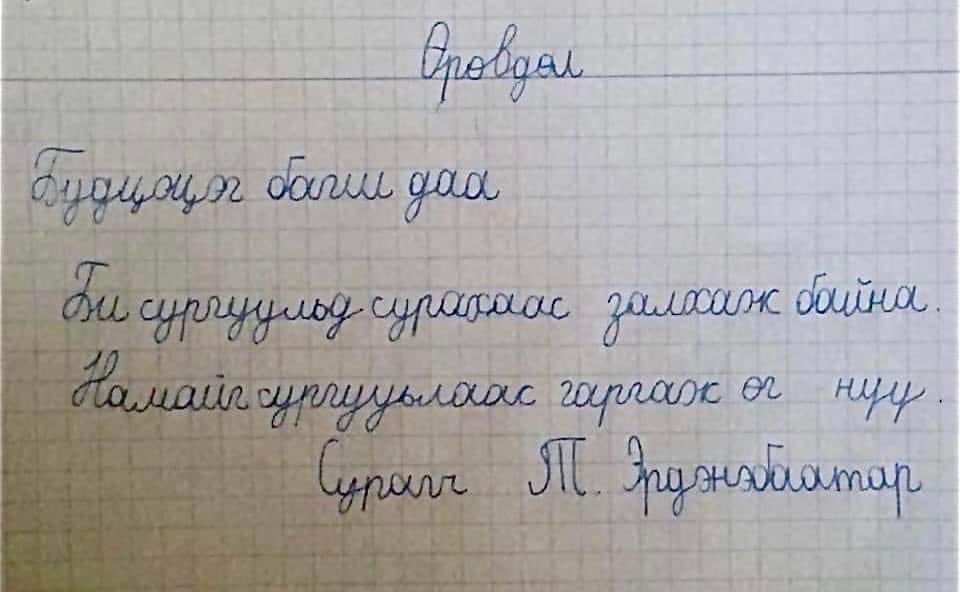 Өровдол
Будцэцэг багш даа
Би сургуульд сурахаас залхаж байна.
Намайг сургууьлаас гаргаж өг нуу.
Сурагч Т. Эрдэнэбаатар